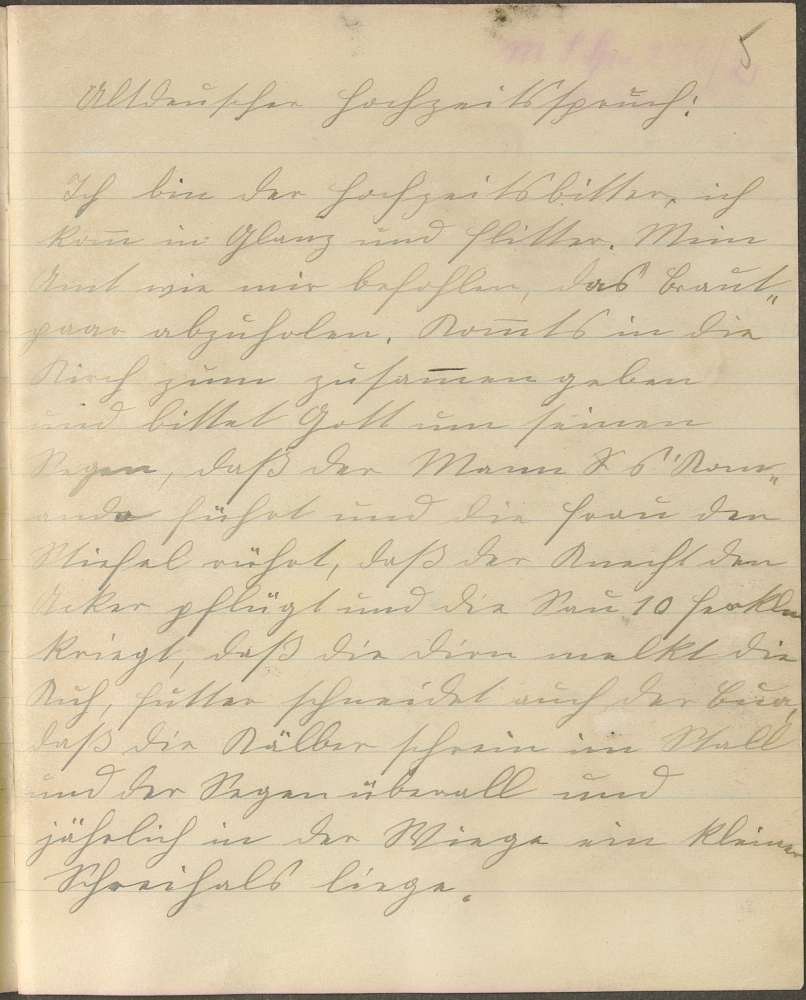 5
Altdeutscher Hochzeitsspruch:
Ich bin der Hochzeitsbitter, ich
kom̅ in Glanz und Flitter. Mein
Amt wie mir befohlen, das Braut„
paar abzuholen. Kom̅ts in die
Kirch zum zusam̅engeben
und bittet Gott um seinen
Segen, daß der Mann s' Kom„
ando führt und die Frau den
Stiefel rührt, daß der Knecht den
Acker pflügt und die Sau 10 Ferkln
kriegt, daß die Dirn melkt die
Kuh, Futter schneidet auch der Bua,
daß die Kälber schrein im Stall
und der Segen überall und
jährlich in der Wiege ein kleiner
Schreihals liege.